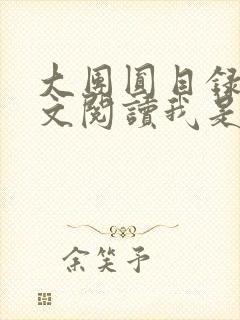 大團圓目錄
文閱讀我是
余笑予